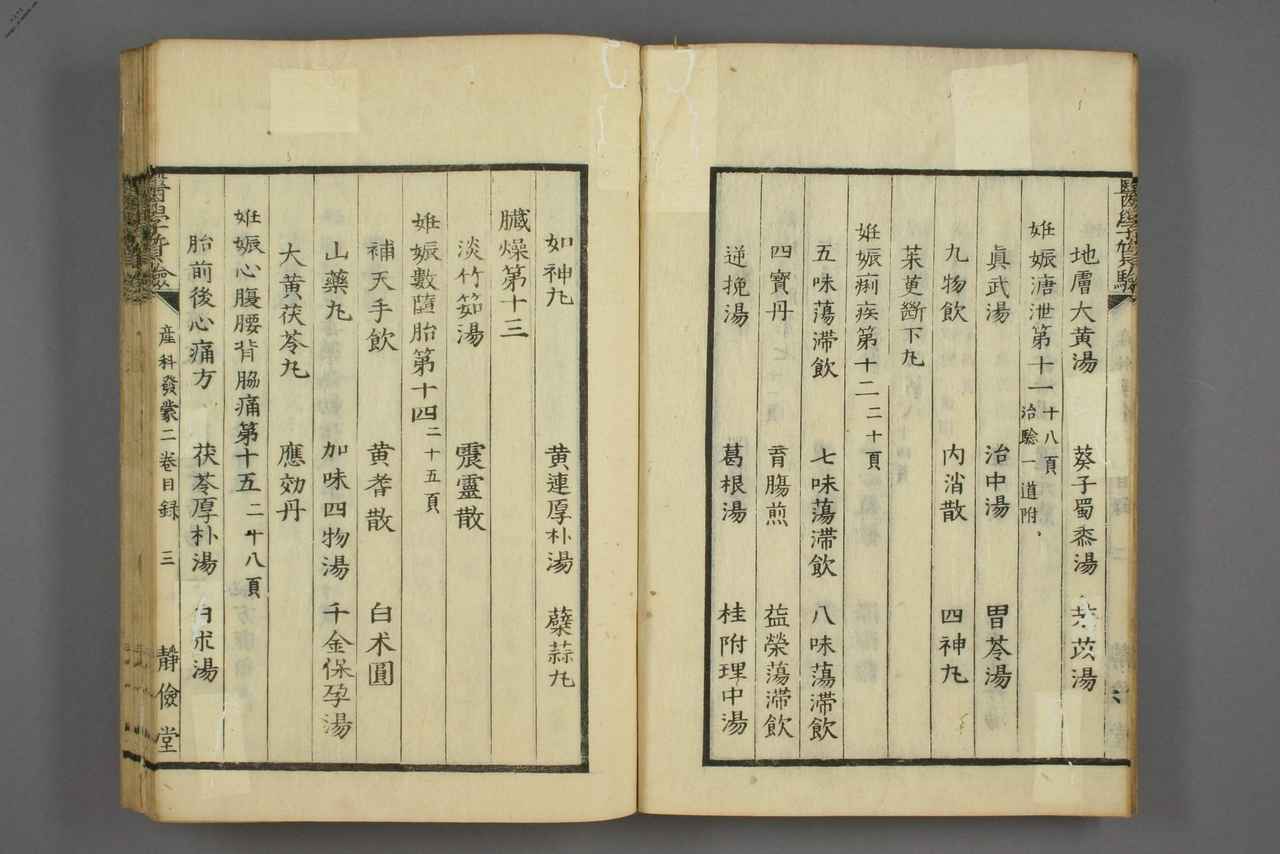 地膚大黃湯　葵子蜀黍湯　芣苡湯
妊娠溏泄第十一 十八頁 治驗一道附
眞武湯　治中湯　胃苓湯
九物飮　內消散　四神丸
茱萸斷下丸
妊娠痢疾第十二 二十頁
五味蕩滯飮　七味蕩滯飮　八味蕩滯飮
四寶丹　胃腸煎　益榮蕩滯飮
逆挽湯　葛根湯　桂附理中湯
如神丸　黃連厚朴湯　蘗蒜丸
臟燥第十三
淡竹茹湯　震靈散
妊娠數墮胎第十四 二十五頁
補天手飮　黃耆散　白朮圓
山藥丸　加味四物湯　千金保孕湯
大黃茯苓丸　應効丹
妊娠心腹腰背脇痛第十五 二十八頁
胎前後心痛方　茯苓厚朴湯　白朮湯
醫學實驗　產科發蒙二卷目錄　三　靜儉堂